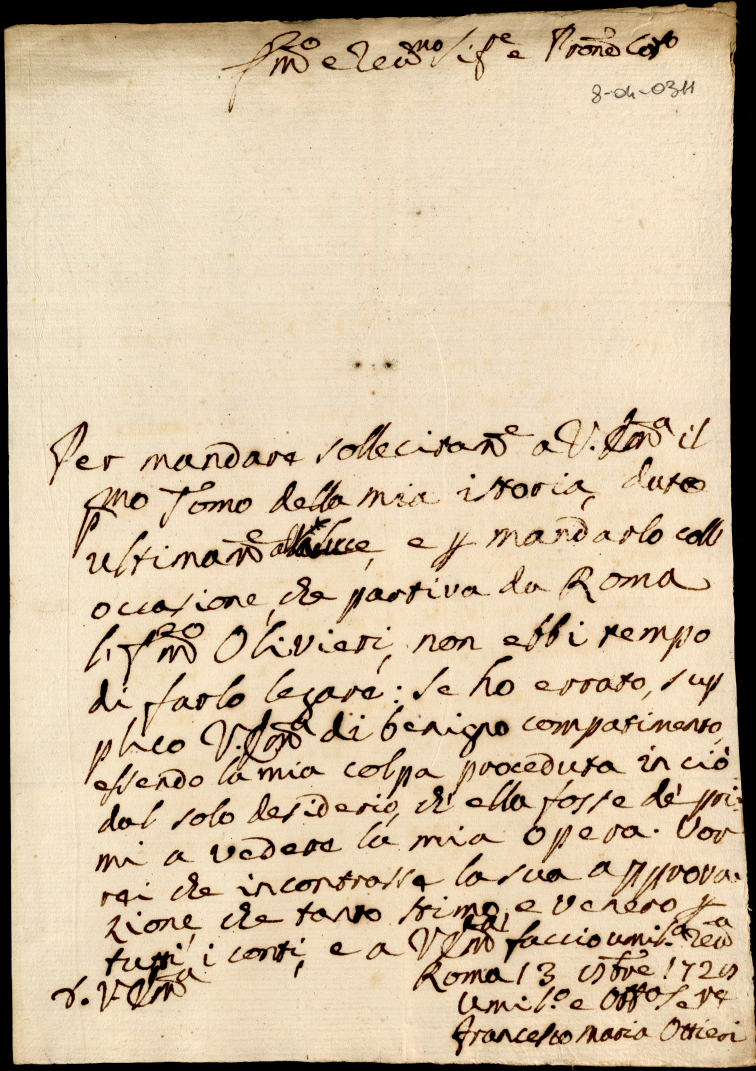 Em̄o e Reu̅mo Sig.re e Prōne Col.mo
8-04-0311
Per mandare sollecitam̄e a V. Em̄a il
p̄mo Tomo della mia istoria, dato
ultimam̄e alla luce, e p mandarlo coll
occasione, che partiva da Roma
l'Em̄o Olivieri, non ebbi tempo
di farlo legare: se ho errato, sup
plico V. Em̄a di benigno compatimento,
essendo la mia colpa proceduta in ciò
dal solo desiderio, ch' ella fosse de' pri-
mi a vedere la mia opera. Vor
rei che incontrasse la sua approva-
zione, che tanto stimo, e venero p
tutti i conti, e a V. Em̄a faccio umil.a reu̅a
Roma 13 1729
D. V. Em̄a
Umil.o e Obb.o Ser.re
Francesco Maria Ottieri